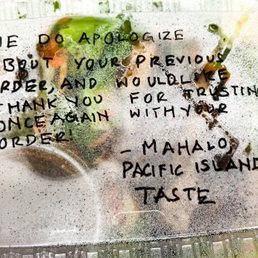 WE DO APOLOGIZE
ABOUT YOUR PREVIOUS
ORDER, AND WOULD LIKE
THANK YOU FOR TRUSTING
ONCE AGAIN WITH YOUR
ORDER!
- MAHALO,
PACIFIC ISLAND
TASTE